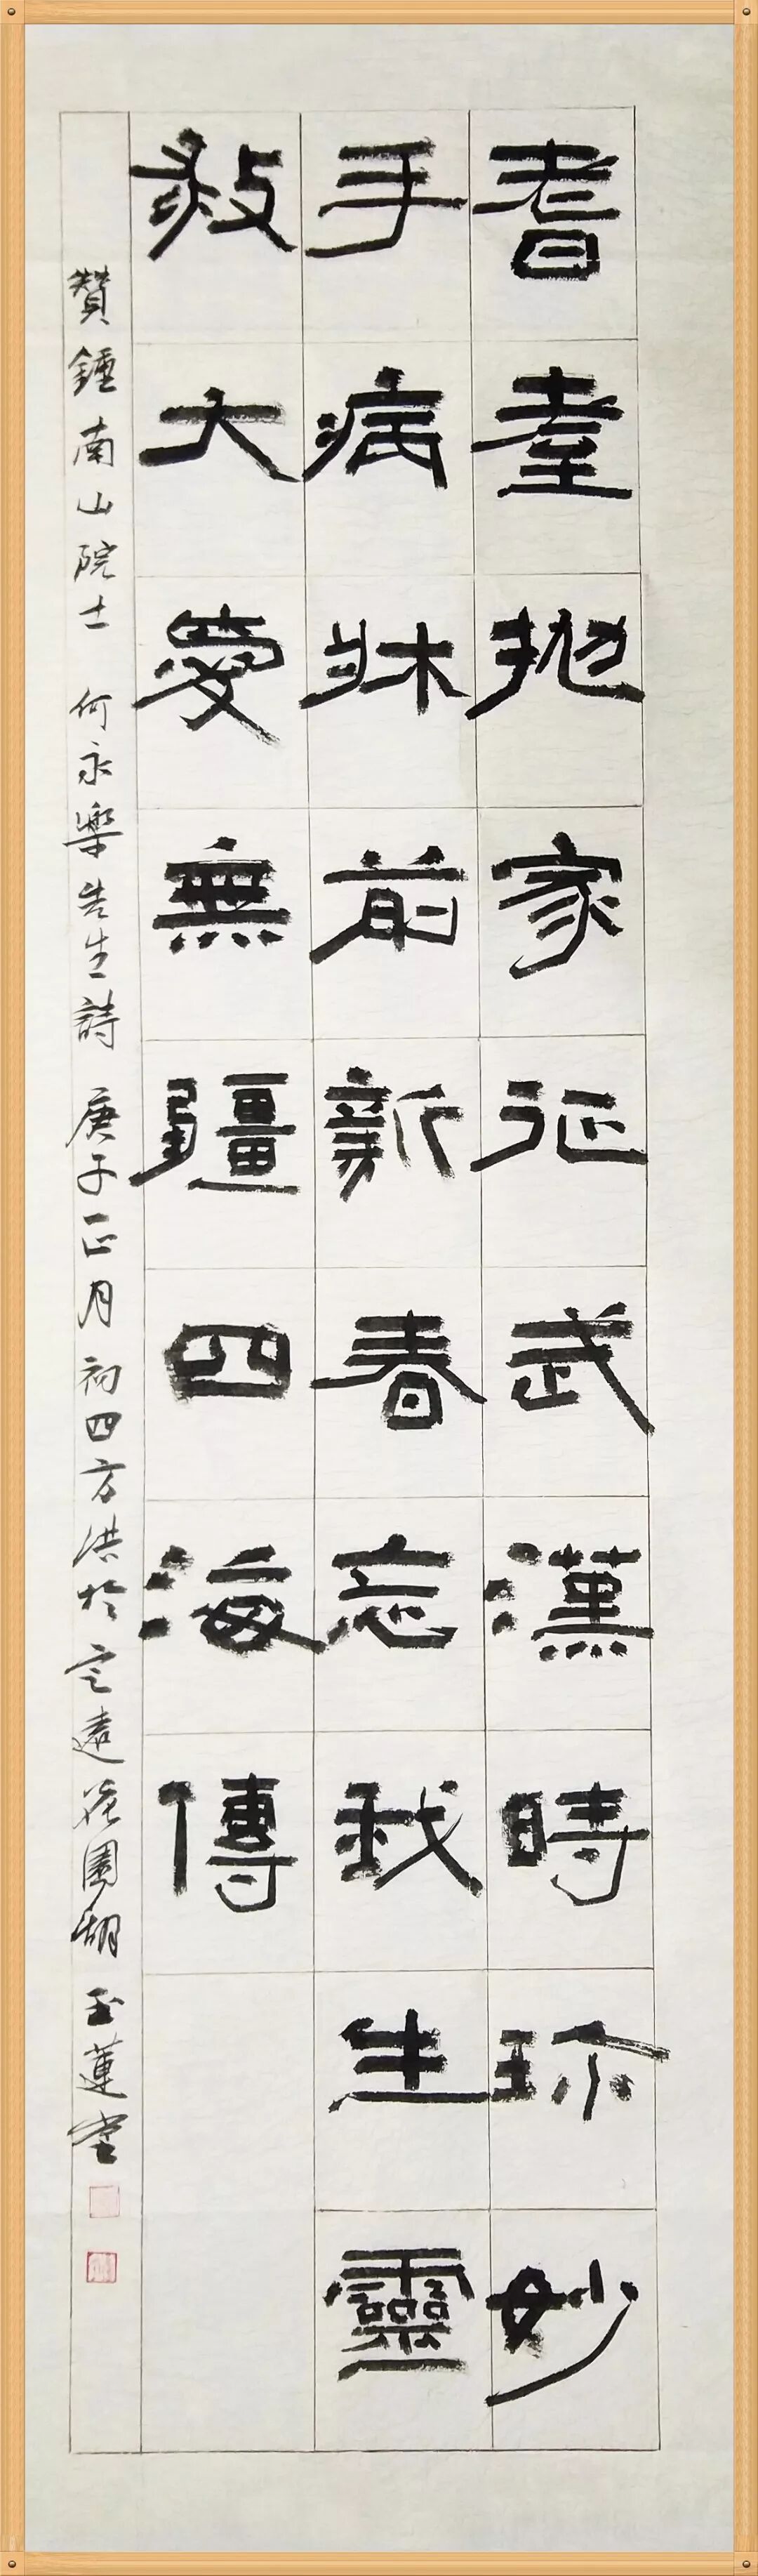 耆耋抛家征武漢時珎妙
手病牀前新春忘我生靈
救大愛無疆四海傳
贊鍾南山院士 何永樂先生詩 庚子正月初四方洪於定遠花園湖玉蓮堂